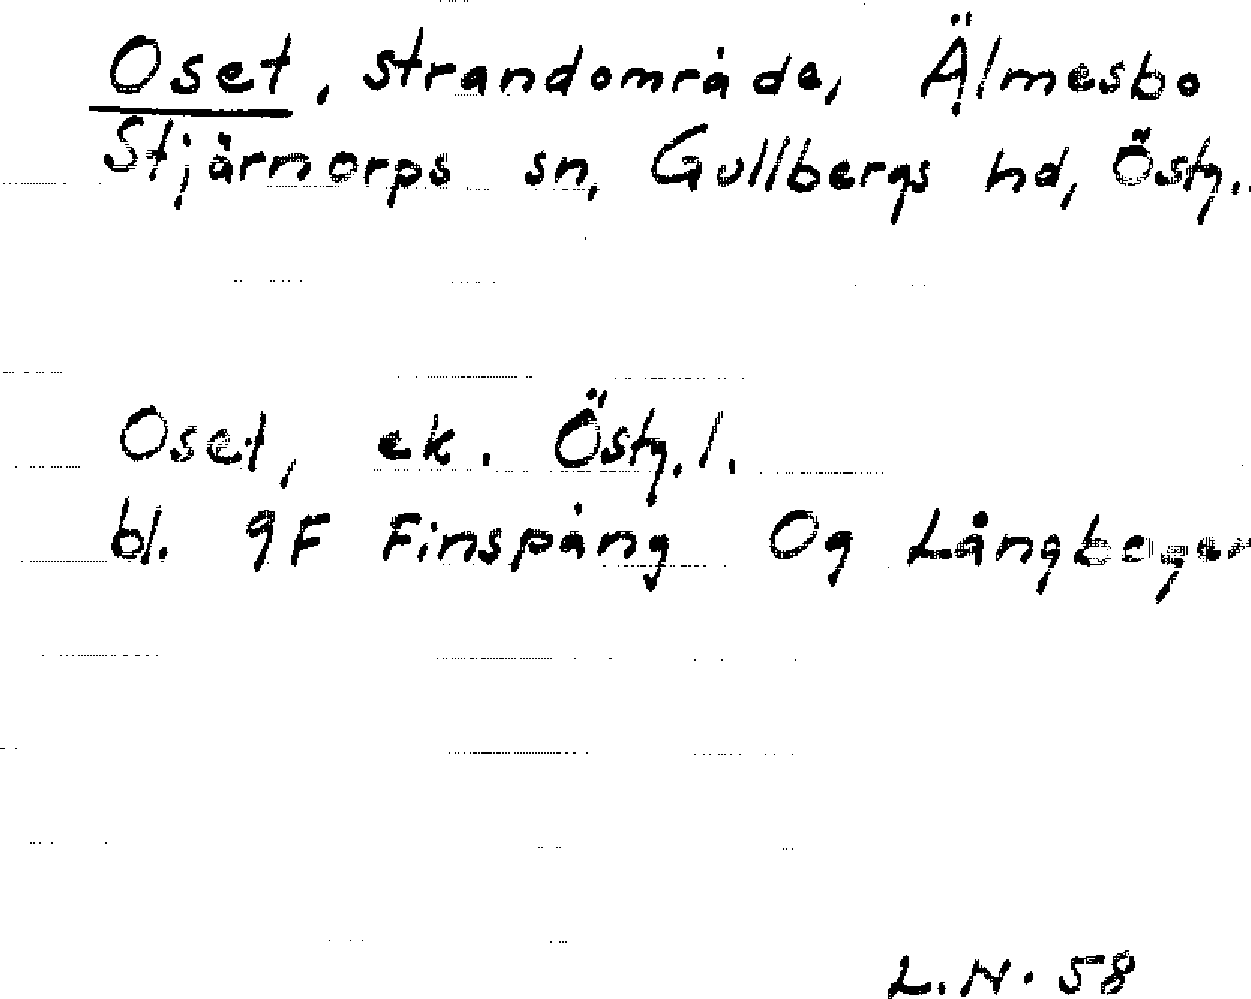 Oset, strandområde, Älmesbo
Stjärnorps sn, Gullbergs hd, Östg..
Oset, ek. Östg. l.
bl. 9F Finspång Og Långbogen
L.N. 58